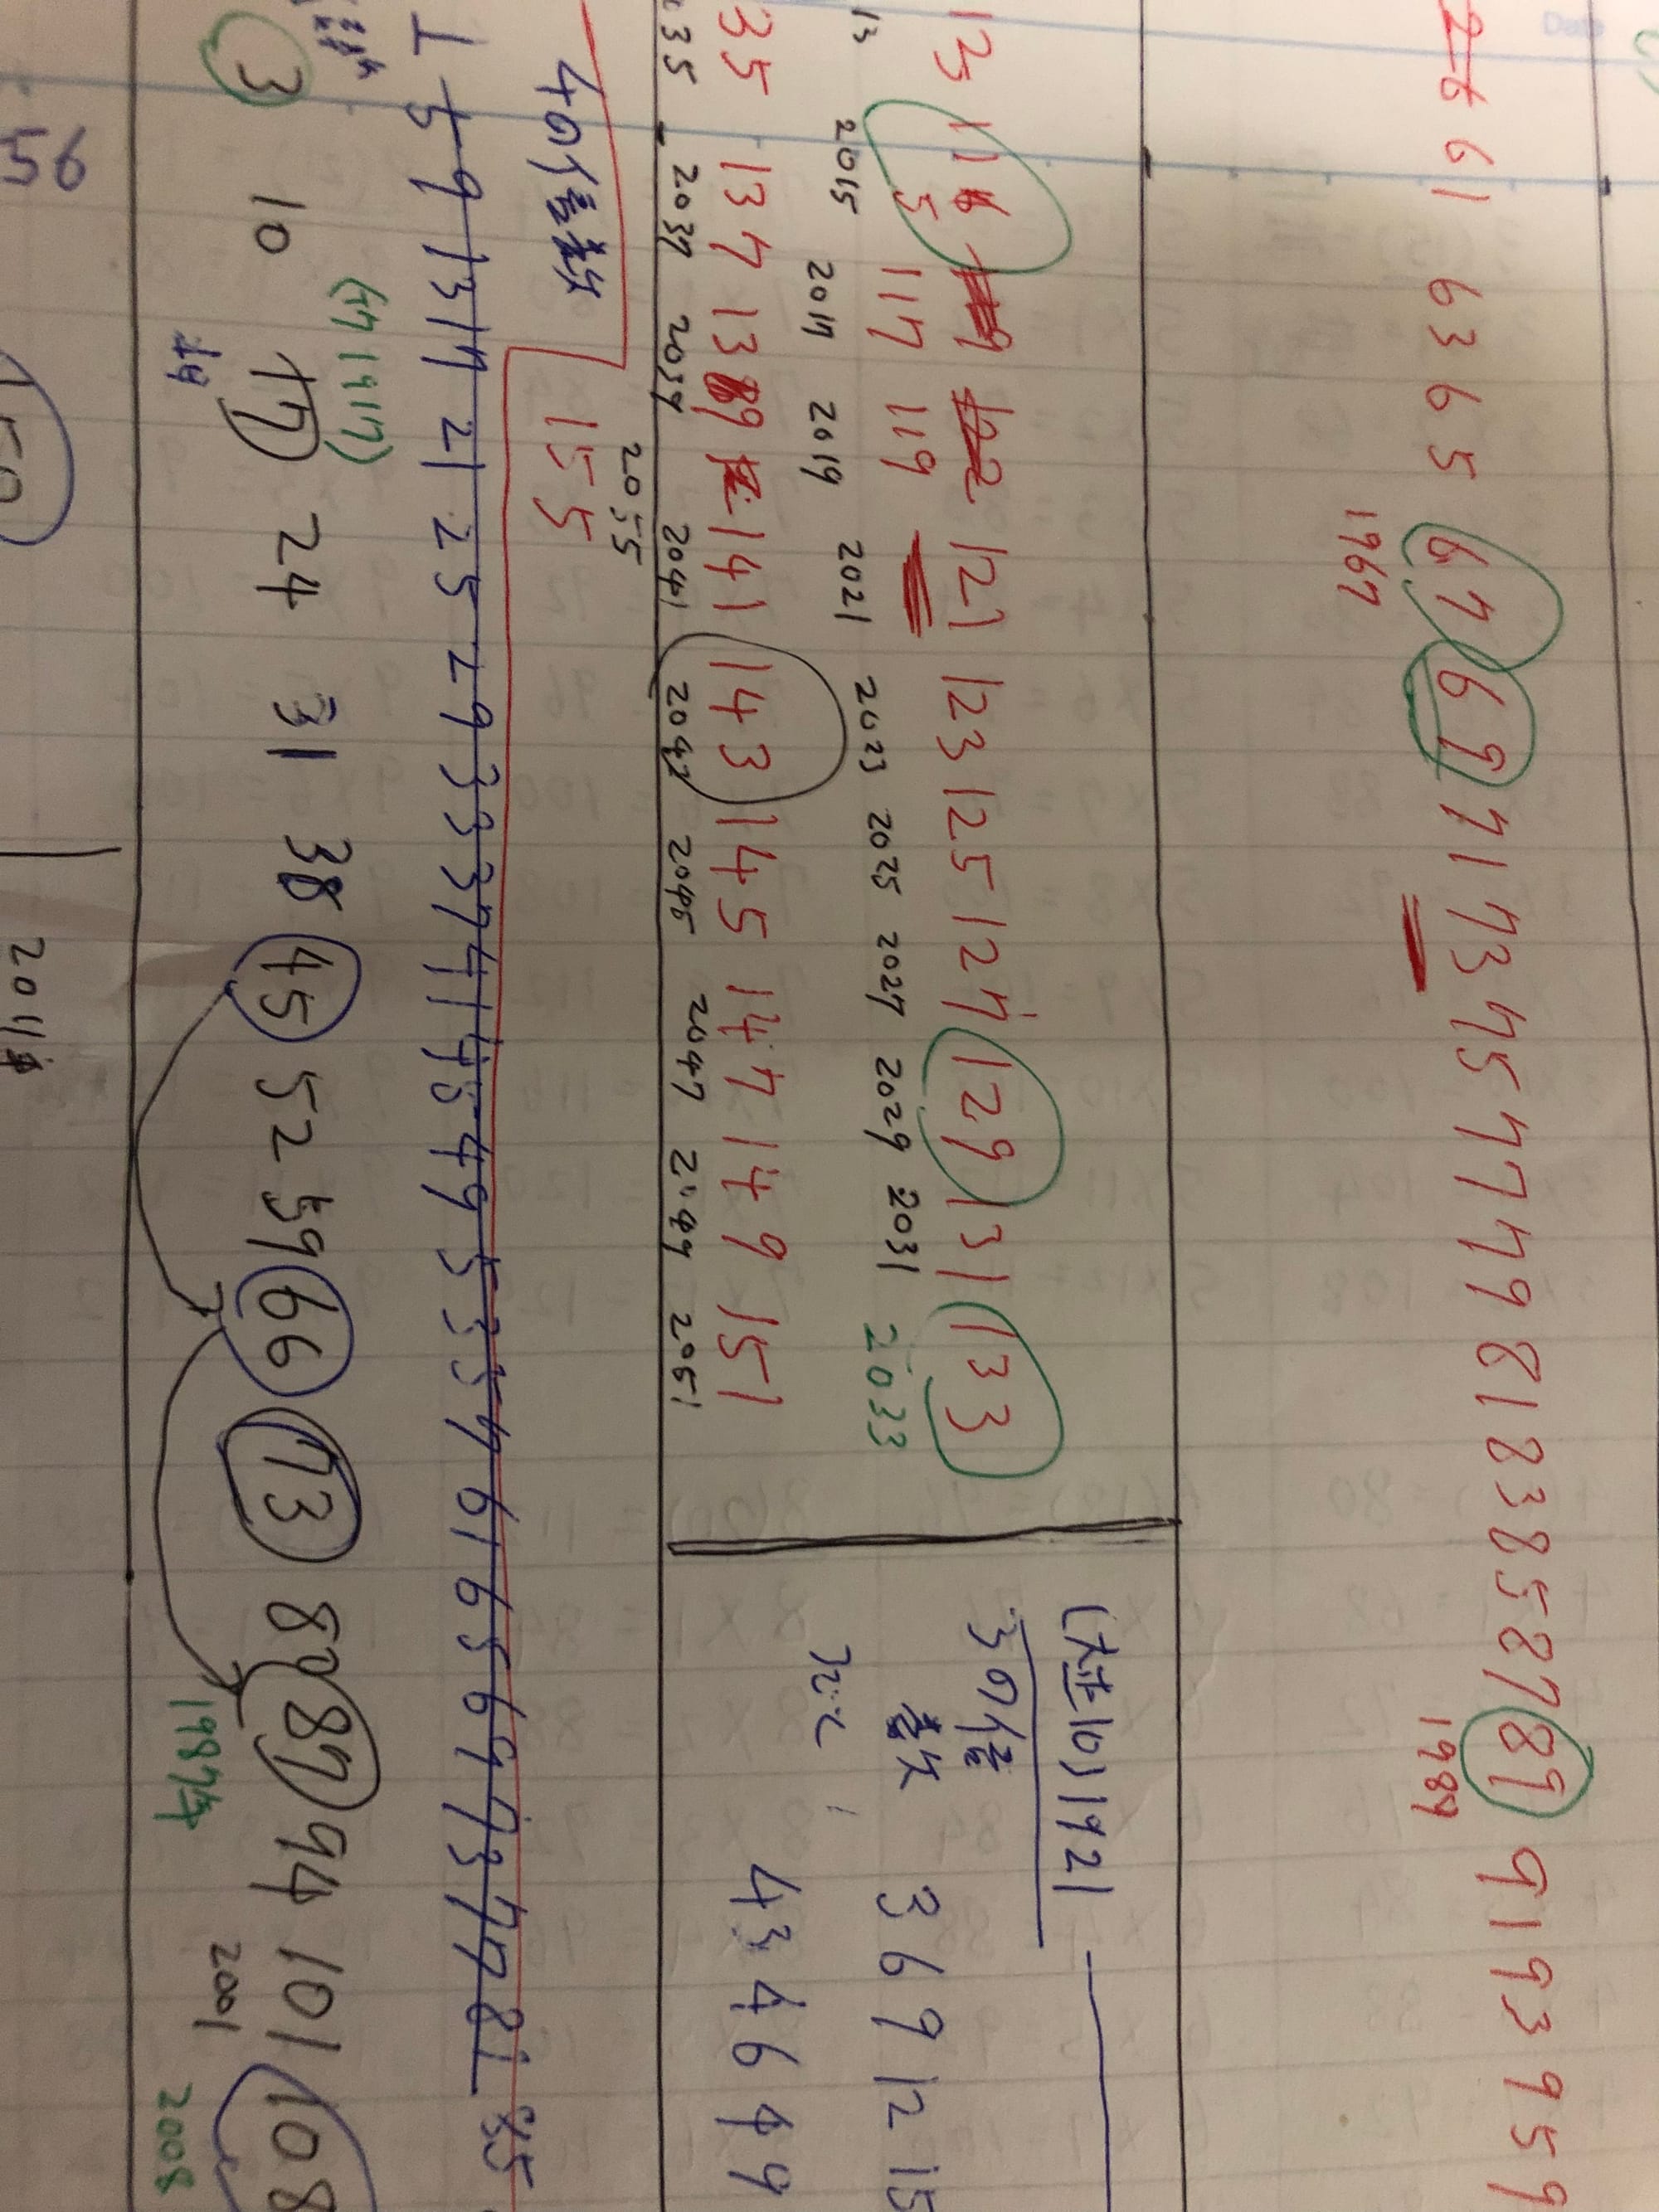 Date
61 63 65 67 69 71 73 75 77 79 81 83 85 87 89 91 93 95 9
1967 1989
115 117 119 121 123 125 127 129 131 133
2015 2017 2019 2021 2023 2025 2027 2029 2031 2033
(大正10) 1921
3の倍数
3 6 9 12 15
43 46 49
35 137 139 141 143 145 147 149 151
35 2037 2039 2041 2043 2045 2047 2049 2051
2055
155
4の倍数
5 9 13 17 21 25 29 33 37 41 45 49 53 57 61 65 69 73 77 81 85
(17 1917)
3 10 17 24 31 38 45 52 59 66 73 80 87 94 101 108
1987年 2001 2008
56
150